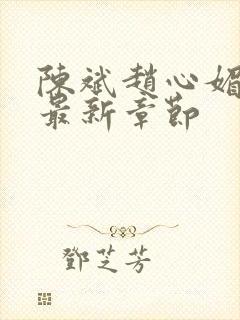 陳斌趙心媚
最新章節
鄧芝芳